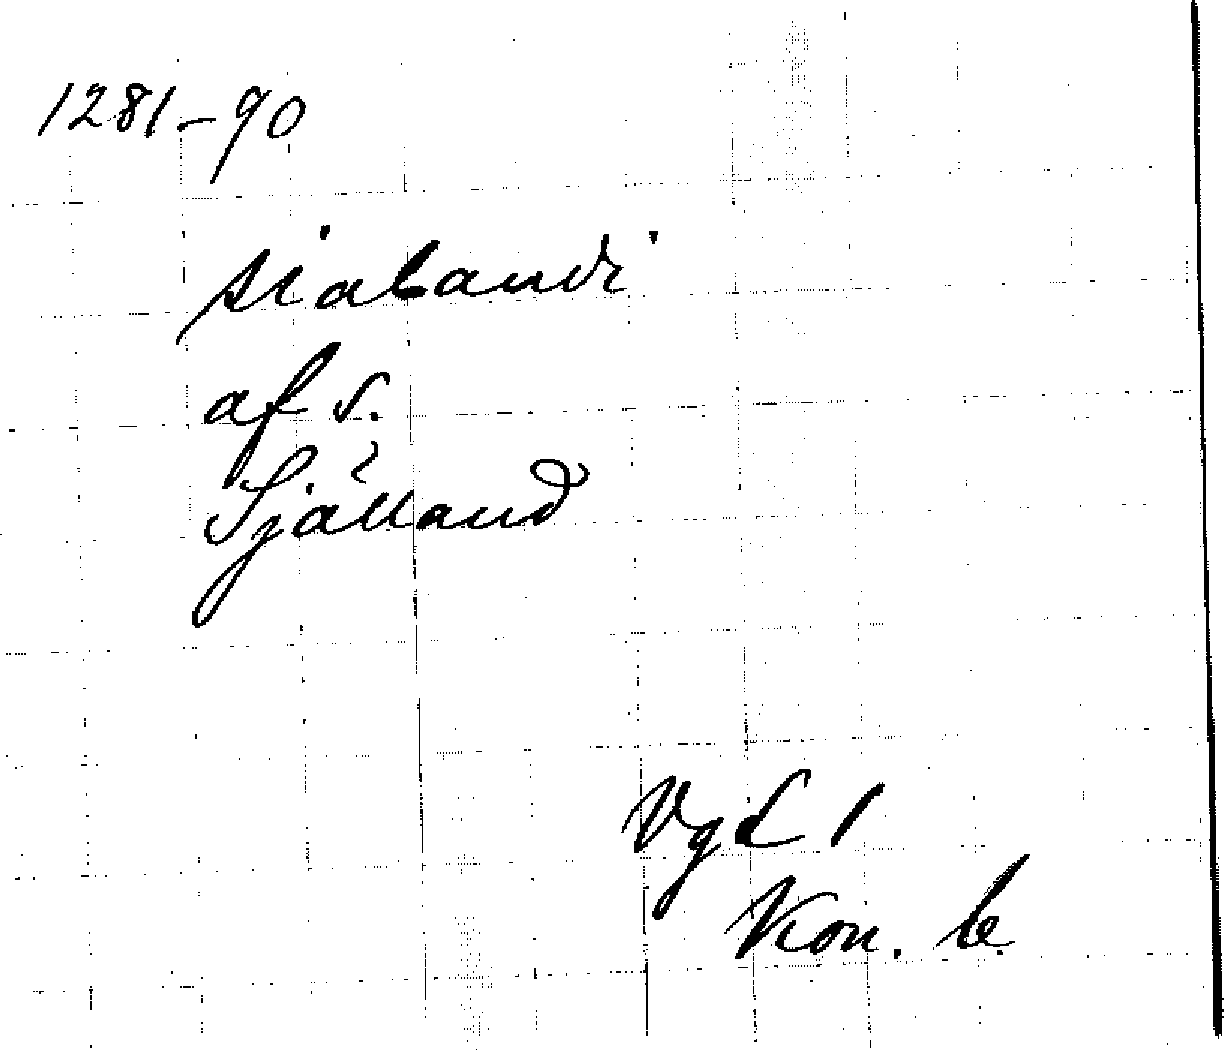 1281-90
siálandi
af s.
Själland
VgL 1
Kon. b.